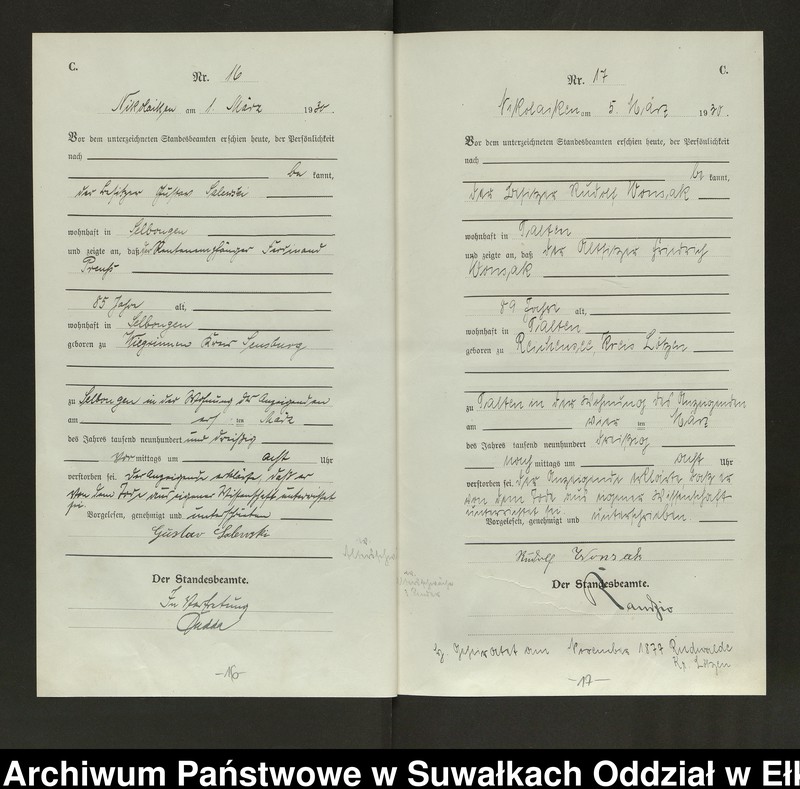 C.
Nr. 16
Nikolaiken am 1. März 1930.
Vor dem unterzeichneten Standesbeamten erschien heute, der Persönlichkeit
nach
be kannt,
der Besitzer Gustav Salewski
wohnhaft in Selbongen
und zeigte an, daß der Rentenempfänger Ferdinand
Preuß
85 Jahre alt,
wohnhaft in Selbongen
geboren zu Kreis Sensburg
zu Selbongen in der Wohnung des Anzeigenden
am ten März
des Jahres tausend neunhundert und dreißig
Vor mittags um acht Uhr
verstorben sei. Der Anzeigende erklärte, daß er
von dem Tode aus eigener Wissenschaft unterrichtet
sei.
Vorgelesen, genehmigt und unterschrieben
Gustav Salewski
Der Standesbeamte.
In Vertretung
-16-
C.
Nr. 17
Nikolaiken am 5. März 1930.
Vor dem unterzeichneten Standesbeamten erschien heute, der Persönlichkeit
nach
be kannt,
der Besitzer Rudolf Wonsak
wohnhaft in Talten
und zeigte an, daß der Altsitzer Friedrich
Wonsak
89 Jahre alt,
wohnhaft in Talten
geboren zu Reichensee, Kreis Lötzen
zu Talten in der Wohnung des Anzeigenden
am vier ten März
des Jahres tausend neunhundert dreißig
nach mittags um acht Uhr
verstorben sei. Der Anzeigende erklärte daß er
von dem Tode aus eigener Wissenschaft
unterrichtet sei.
Vorgelesen, genehmigt und unterschrieben.
Rudolf Wonsak
Der Standesbeamte.
Randzio
geheiratet am November 1877
Kr. Lötzen
-17-
Archiwum Państwowe w Suwałkach Oddział w Ełk